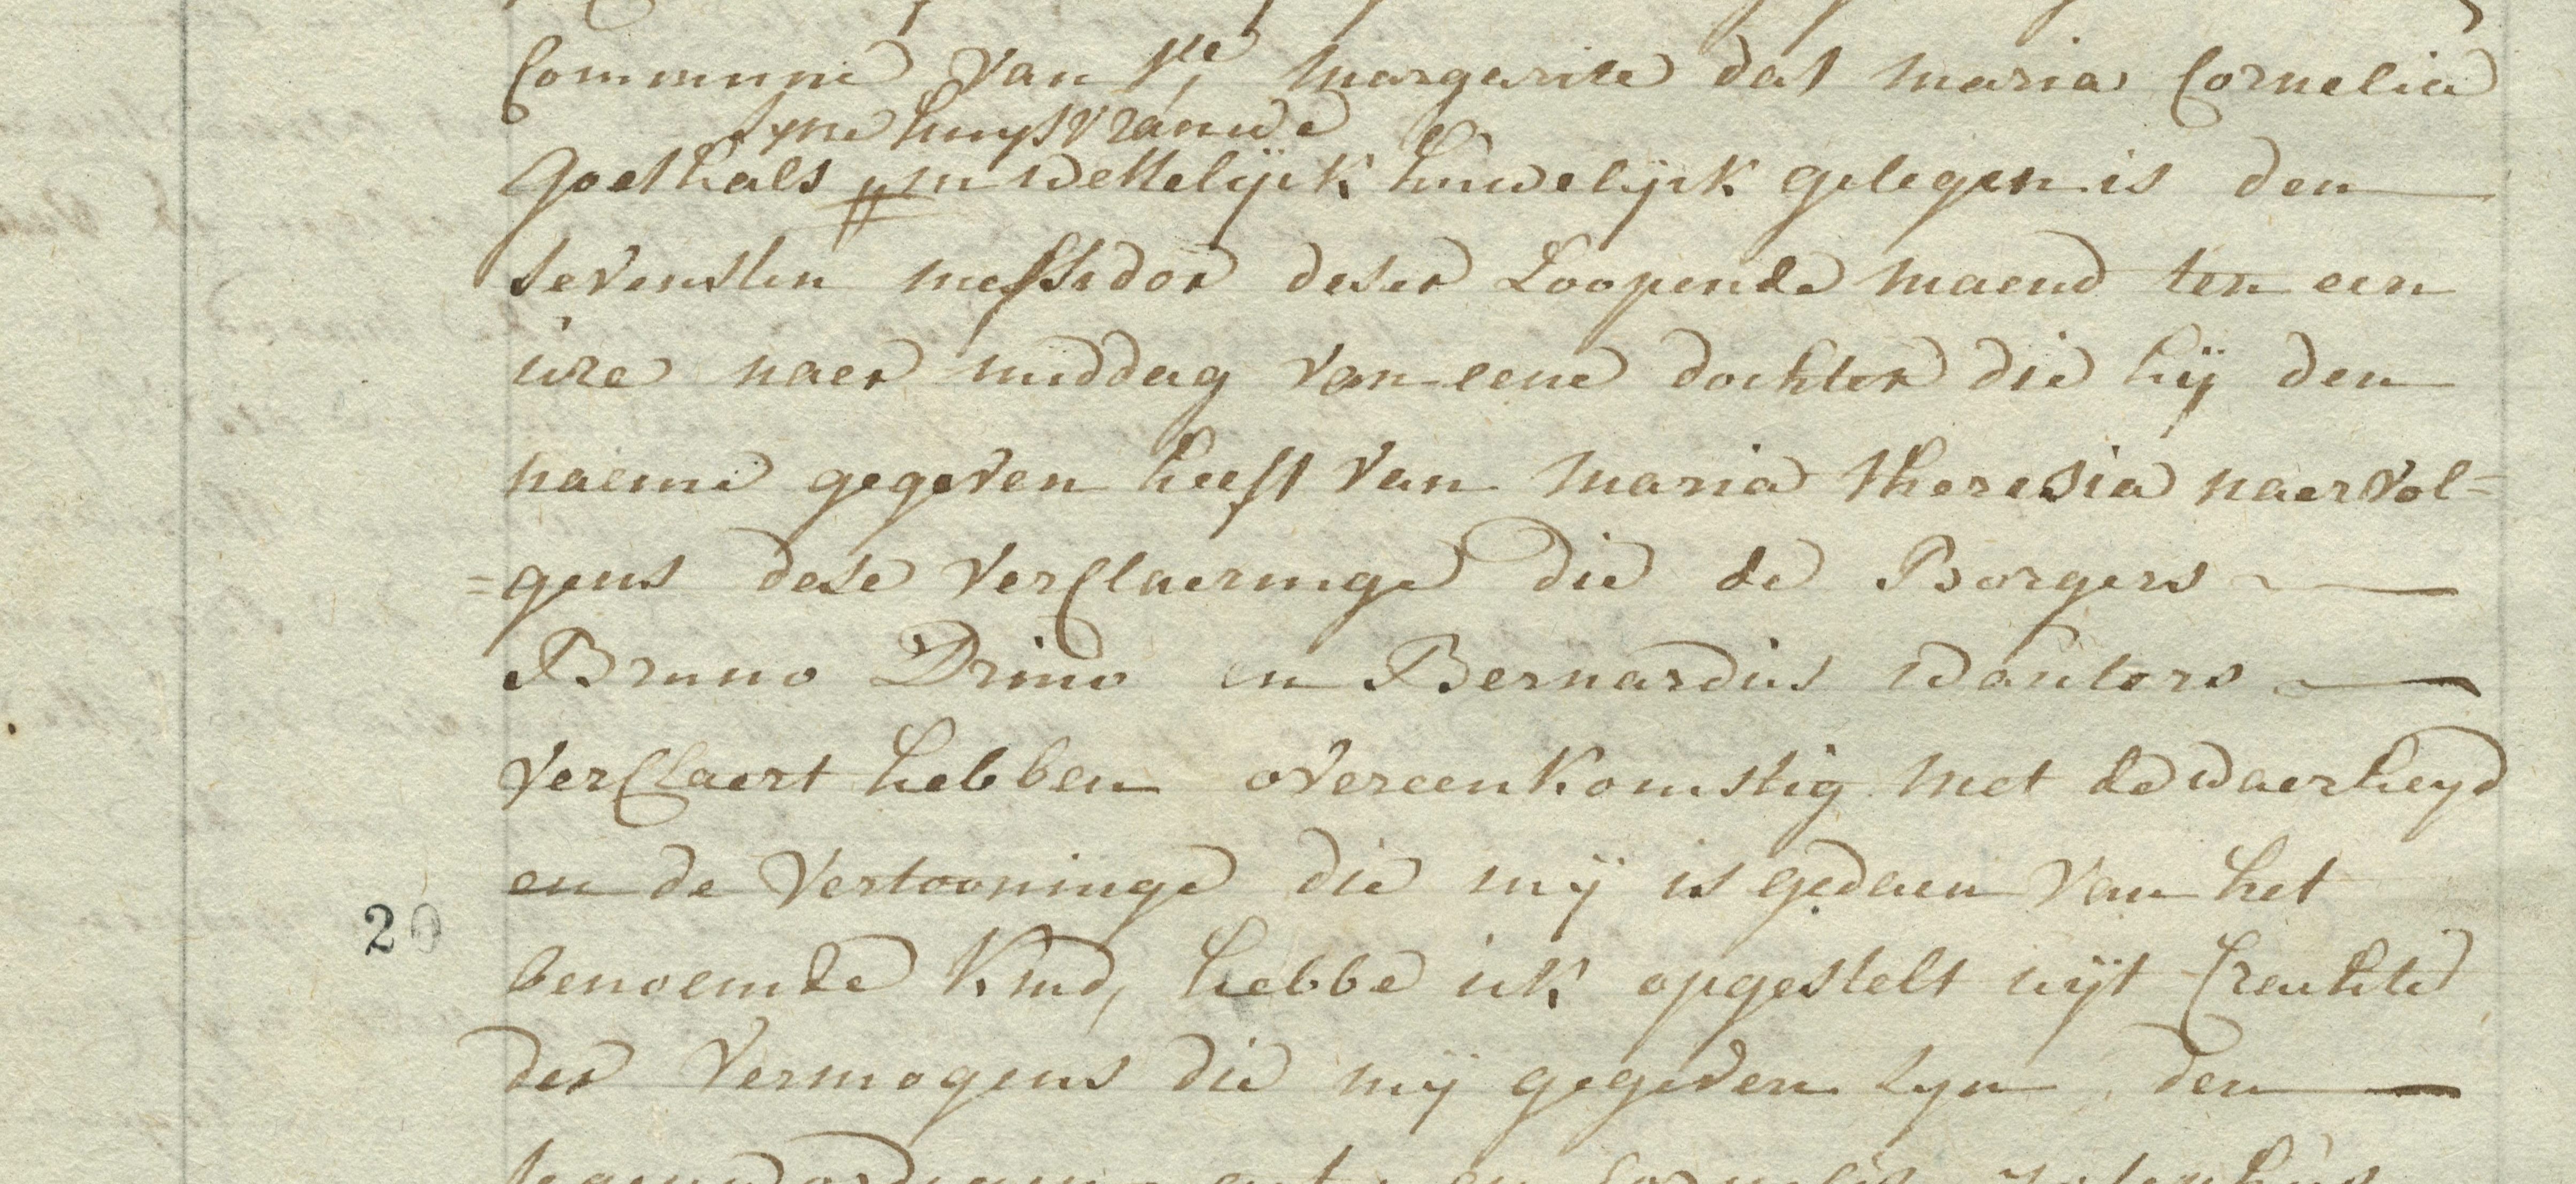 Commune van Ste, Margarite dat Maria Cornelia
syne huysvrauwe
Goethals # in wettelijck huwelijck gelegen is den
sevensten messidor deser Loopende maend ten een
ure naer middag van eene dochter die hij den
naeme gegeven heeft van Maria Theresia naervol=
=gens dese verClaeringe die de Borgers
Bruno Primo en Bernardus Wauters
verClaert hebben overeenkomstig met de waerheyd
en de vertooninge die mij is gedaen van het
20
benoemde Kind, hebbe ick opgestelt uijt Crachte
der vermogens die mij gegeven syn den